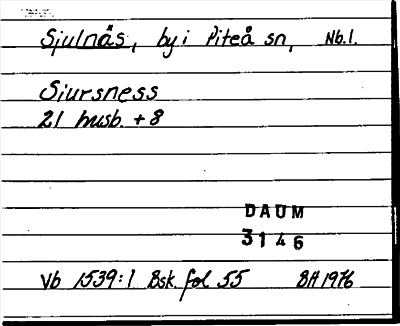 Sjulnäs, by i Piteå sn, Nb.l.
Siursness
21 husb. + 8
DAUM
3146
Vb 1539:1 Bsk. fol 55 BH 1976